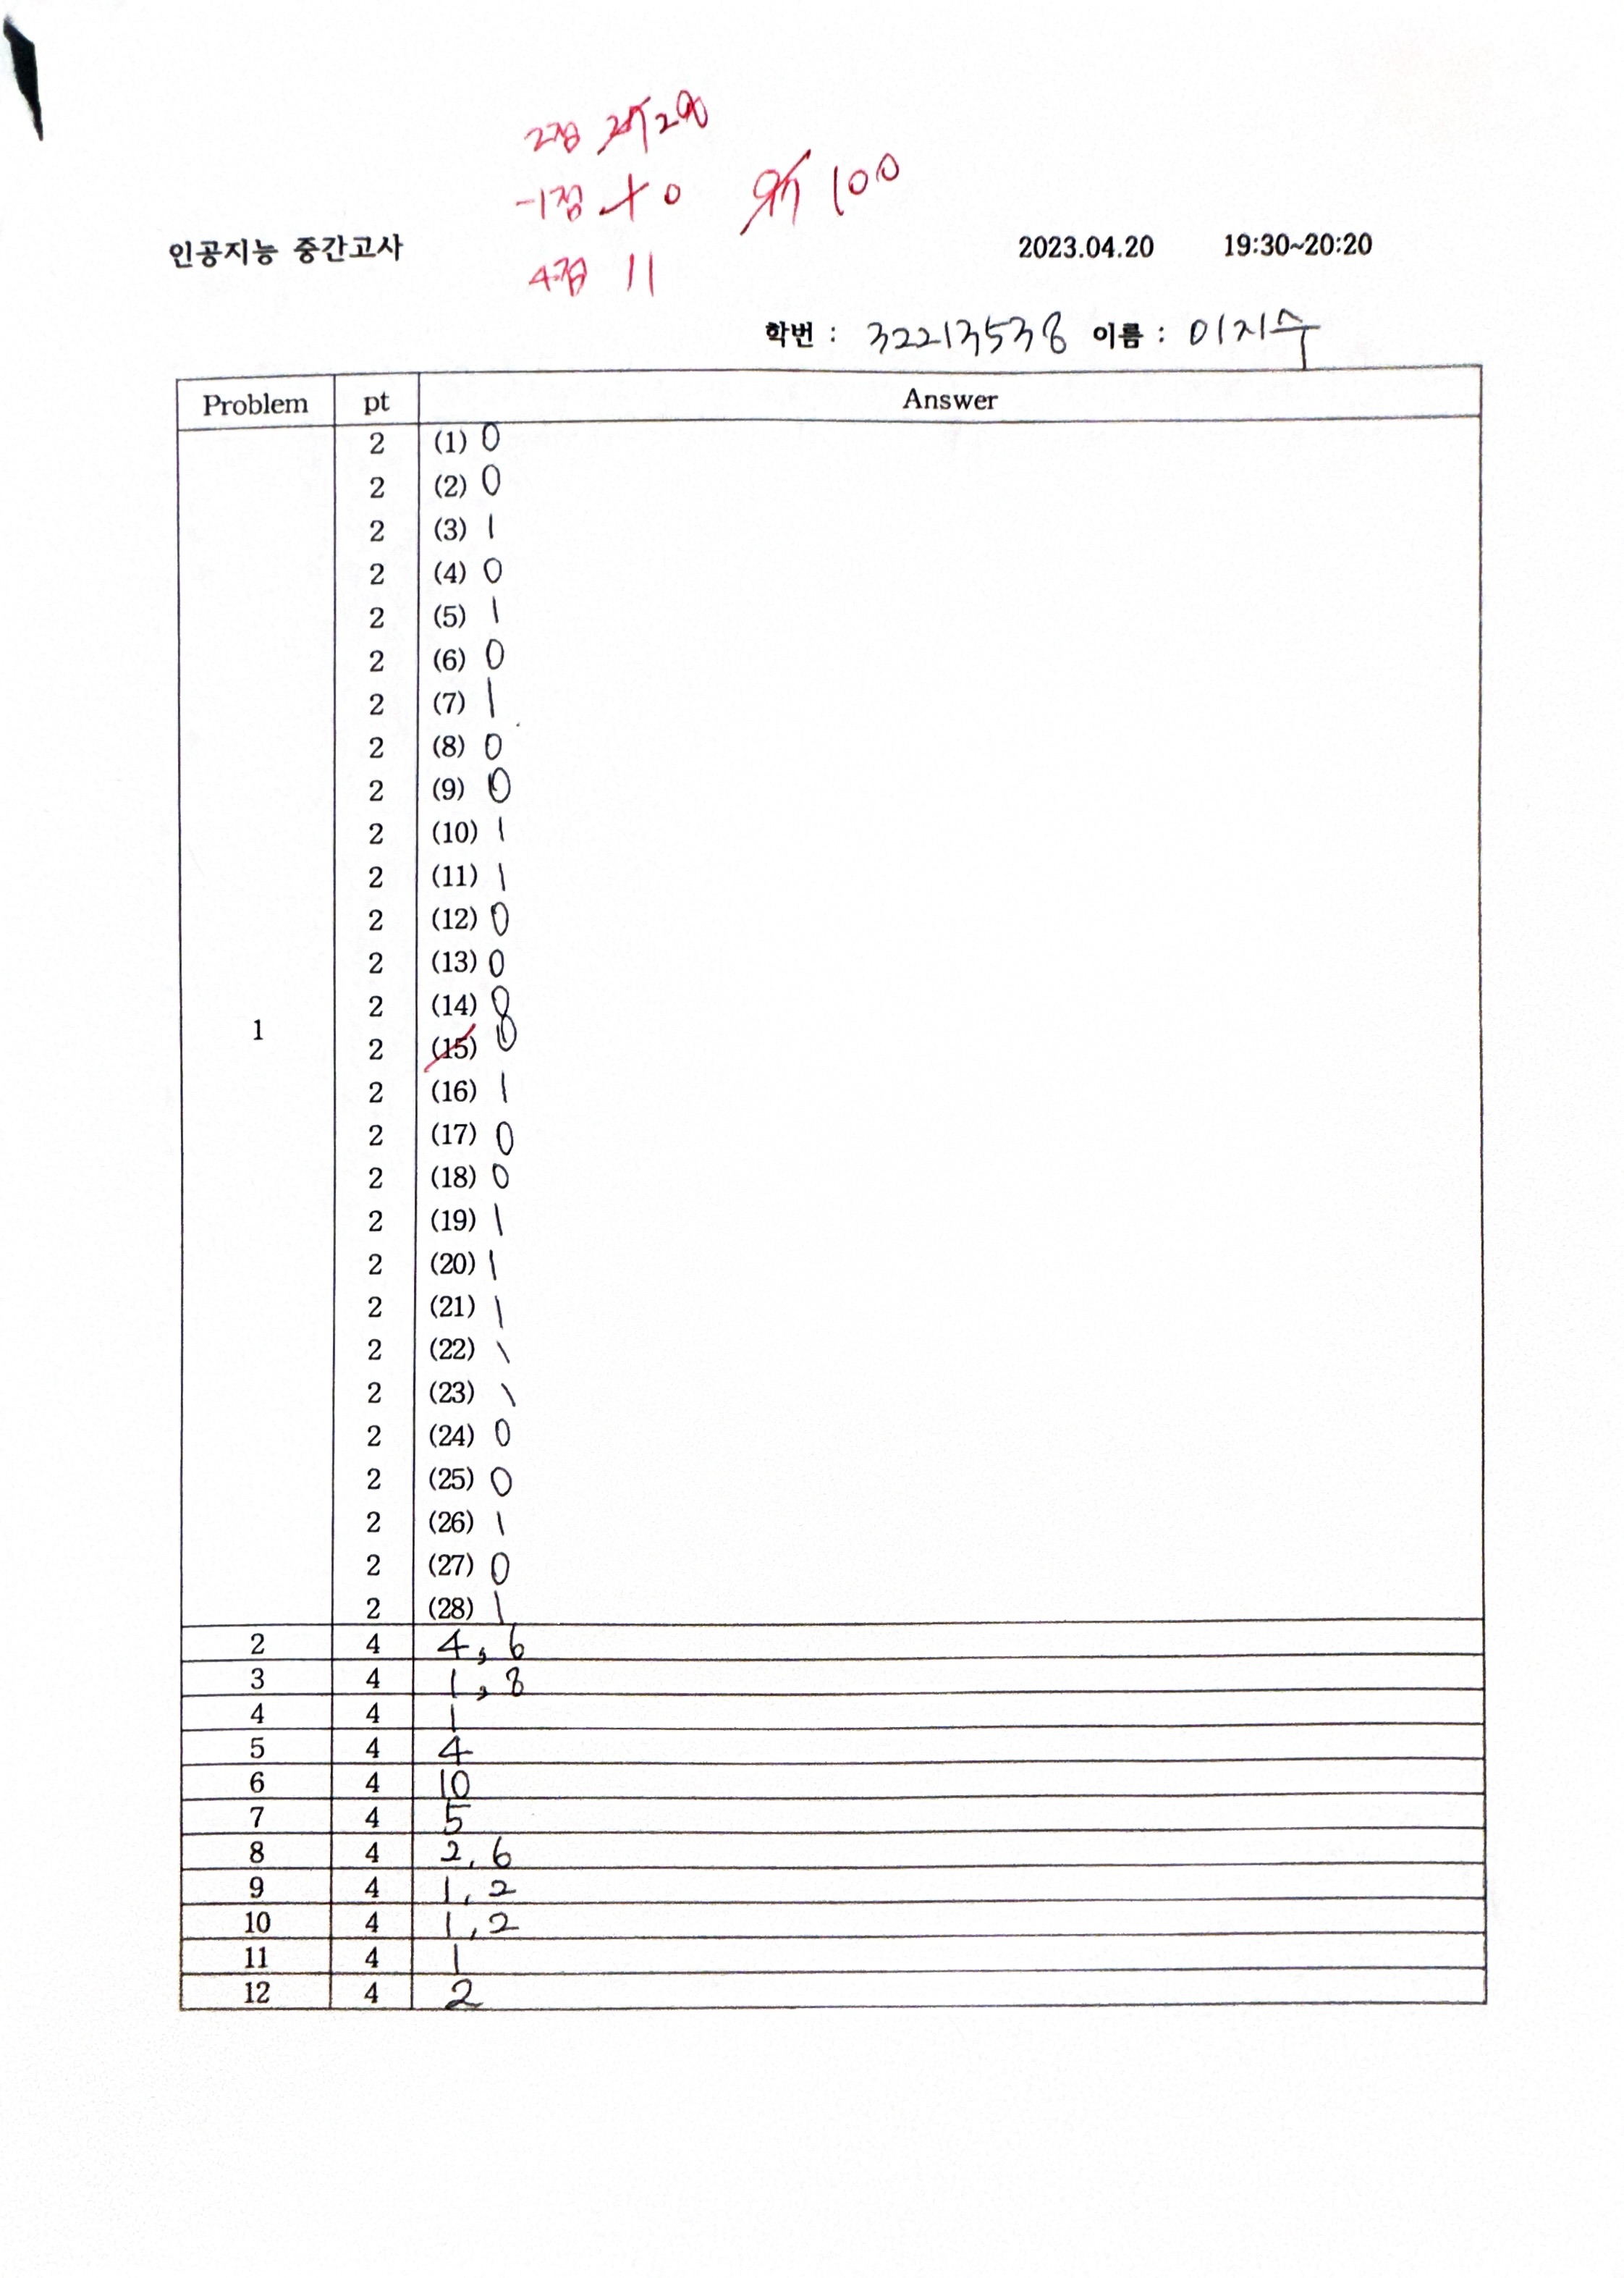 2점 28
-1점 0 100
인공지능 중간고사 2023.04.20 19:30~20:20
4점 11
학번 : 32213538 이름 : 이지수
Problem pt Answer
2 (1) 0
2 (2) 0
2 (3) 1
2 (4) 0
2 (5) 1
2 (6) 0
2 (7) 1
2 (8) 0
2 (9) 0
2 (10) 1
2 (11) 1
2 (12) 0
2 (13) 0
2 (14) 0
1 2 (15) 0
2 (16) 1
2 (17) 0
2 (18) 0
2 (19) 1
2 (20) 1
2 (21) 1
2 (22) 1
2 (23) 1
2 (24) 0
2 (25) 0
2 (26) 1
2 (27) 0
2 (28) 1
2 4 4, 6
3 4 1, 8
4 4 1
5 4 4
6 4 10
7 4 5
8 4 2, 6
9 4 1, 2
10 4 1, 2
11 4 1
12 4 2